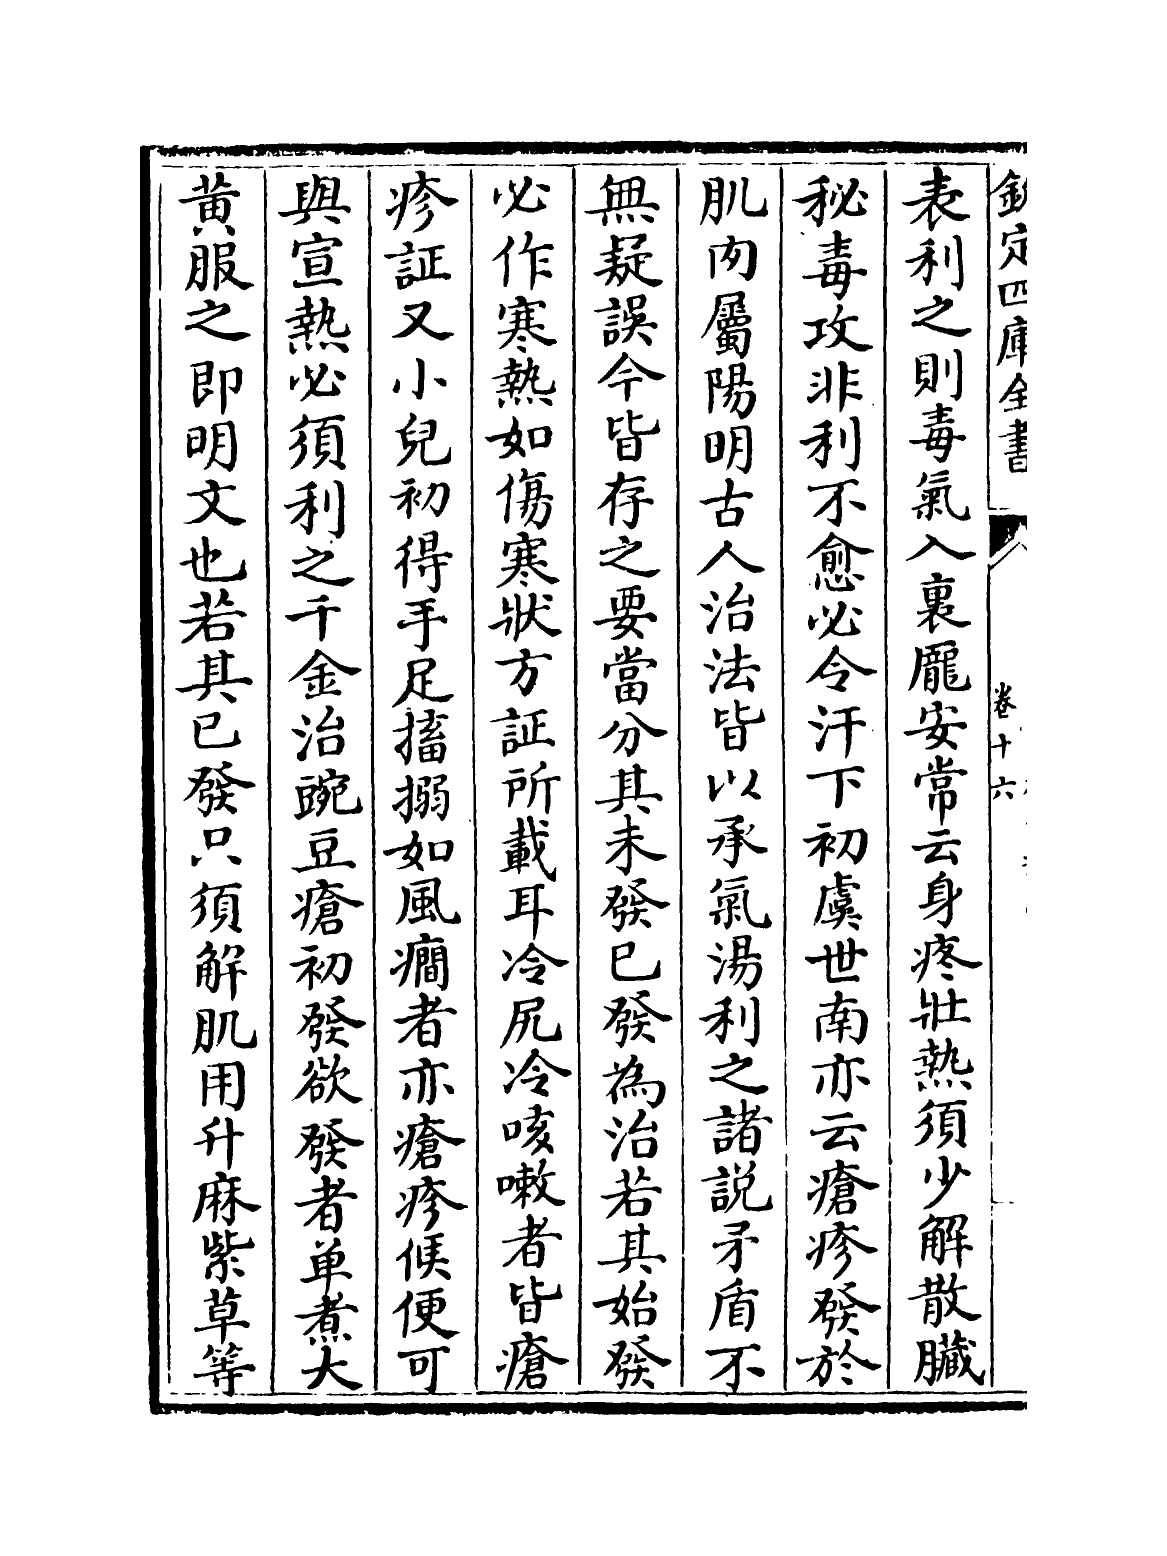 欽定四庫全書
卷十六
表利之則毒氣入裏龎安常云身疼壯熱須少解散臓
秘毒攻非利不愈必令汗下初虞世南亦云瘡疹發於
肌肉屬陽明古人治法皆以承氣湯利之諸説矛盾不
無疑誤今皆存之要當分其未發已發為治若其始發
必作寒熱如傷寒狀方証所載耳冷尻冷咳嗽者皆瘡
疹証又小兒初得手足搐搦如風癎者亦瘡疹候便可
與宣熱必須利之千金治豌豆瘡初發欲發者单煮大
黃服之即明文也若其已發只須解肌用升麻紫草等